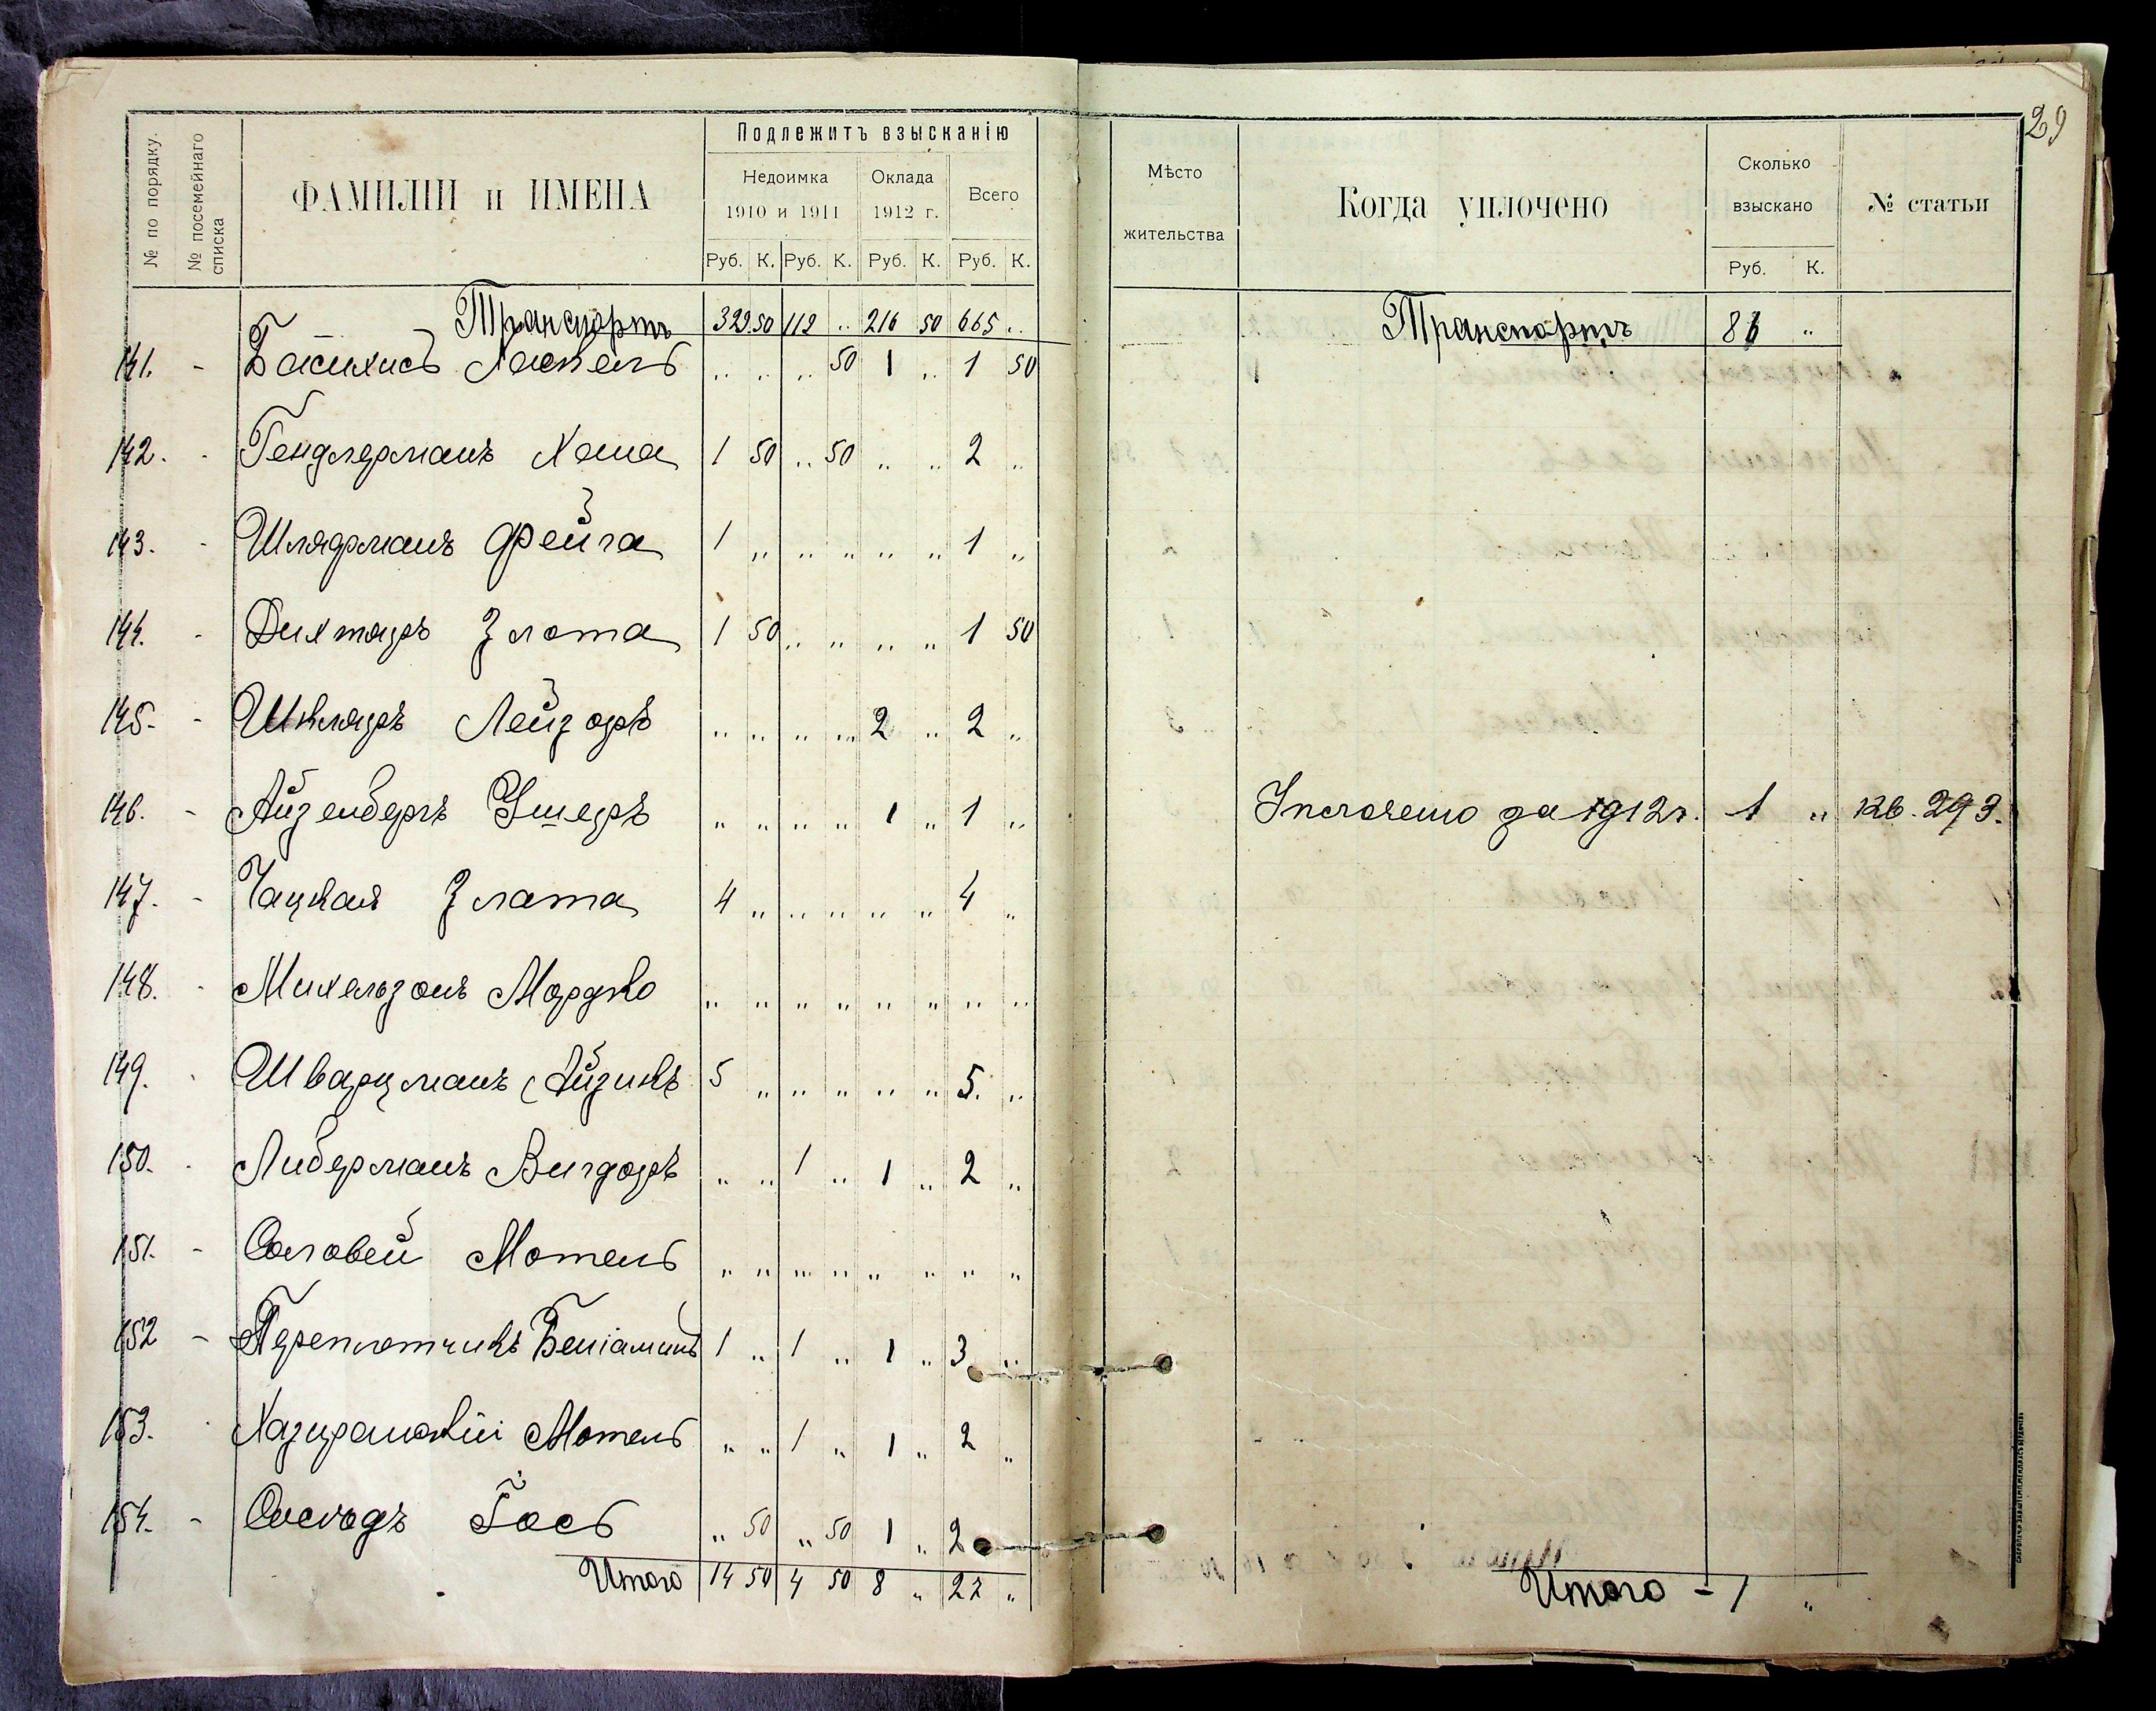 29
№ по порядку.
№ посемейнаго списка
ФАМИЛІИ и ИМЕНА
Подлежитъ взысканію
Недоимка
1910 и 1911
Оклада
1912 г.
Всего
Руб. К. Руб. К. Руб. К. Руб. К.
Мѣсто
жительства
Когда уплочено
Сколько
взыскано
Руб. К.
№ статьи
Транспортъ 329 50 112 .. 216 50 665 .. Транспортъ 86 "
141. - Басихисъ Хаскель .. .. .. 50 1 .. 1 50
142. - Гендлерманъ Хаша 1 50 .. 50 " " 2 "
143. - Шлядманъ Фейга 1 " " " " " 1 "
144. - Дихтяръ Злота 1 50 " " " " 1 50
145. - Шкляръ Лейзоръ " " " " 2 " 2 "
146. - Айзенбергъ Ушеръ " " " " 1 " 1 " за 1912 г. 1 " кв. 293.
147. - Чацкая Злата 4 " " " " " 4 "
148. - Михельзонъ Мордко " " " " " " " "
149. - Шварцманъ Айзикъ 5 " " " " " 5. "
150. - Либерманъ Вигдоръ " " 1 " 1 " 2 "
151. - Соловей Мотель " " " " " " " "
152 - Переплотчикъ Беніаминъ 1 " 1 " 1 " 3 "
153. - Мотель " " 1 " 1 " 2 "
154. - Сосѣдъ Іось " 50 " 50 1 " 2
Итого 14 50 4 50 8 " 27 " Итого - 1 "